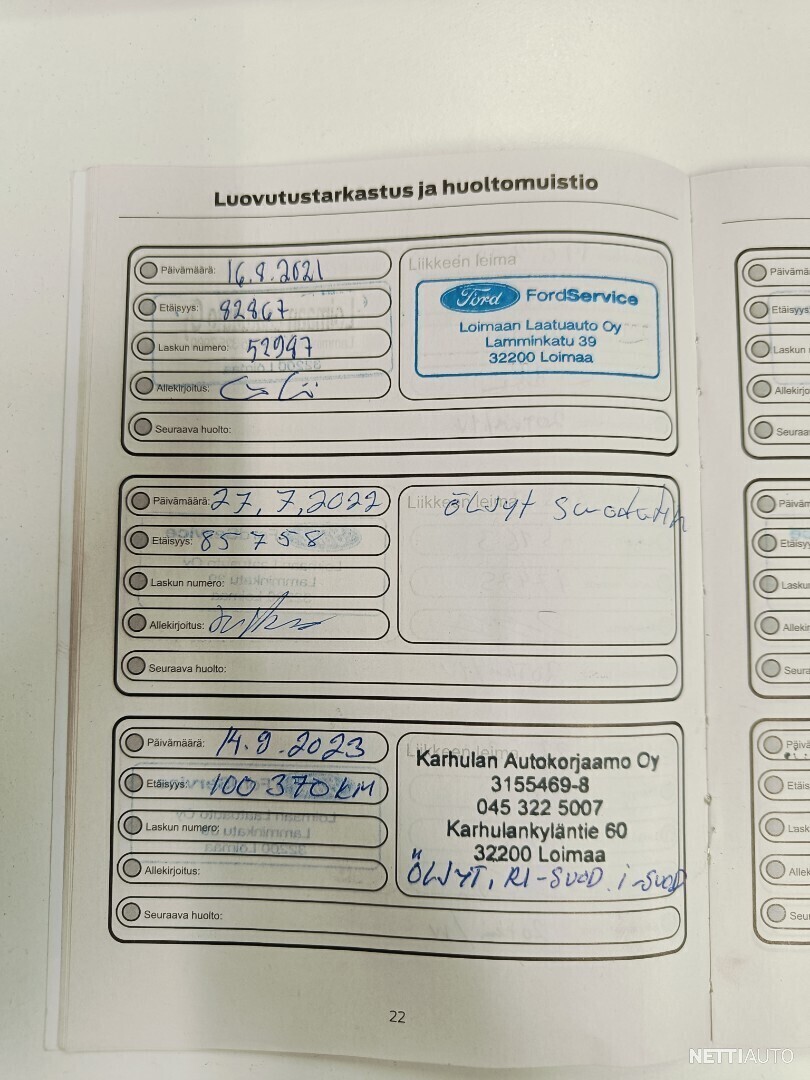 Luovutustarkastus ja huoltomuistio
Päivämäärä: 16.8.2021
Etäisyys: 82867
Laskun numero: 52947
Allekirjoitus:
Seuraava huolto:
Liikkeen leima
Ford FordService
Loimaan Laatuauto Oy
Lamminkatu 39
32200 Loimaa
Päivämäärä: 27.7.2022
Etäisyys: 85758
Laskun numero:
Allekirjoitus:
Seuraava huolto:
Liikkeen leima
ÖLJYT Suodatin
Päivämäärä: 14.9.2023
Etäisyys: 100 370 KM
Laskun numero:
Allekirjoitus:
Seuraava huolto:
Liikkeen leima
Karhulan Autokorjaamo Oy
3155469-8
045 322 5007
Karhulankyläntie 60
32200 Loimaa
ÖLJYT, RI-SUOD i-SUOD
22
NETTIAUTO